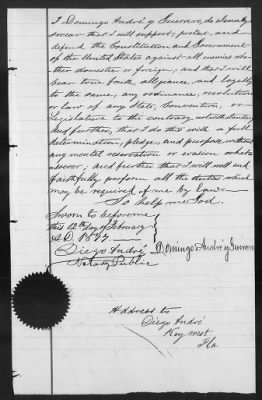 I Domingo André y Guerrero, do solemnly
swear that I will support, protect, and
defend the Constitution and Government
of the United States against all enemies whe-
ther domestic or foreign; and that I will
bear true faith, allegiance and loyalty
to the same, any ordinance, resolution
or law of any State, Convention, or
Legislature to the contrary notwithstanding
And further, that I do this with a full
determination, pledge, and purpose without
any mental reservation or evasion whats
soever; and further that I will well and
faithfully perform all the duties which
may be required of me by law—
So help me God.
Sworn to before me
this 12th day of February
A.D. 1877
Domingo André y
Diego André
Notary Public
Address to
Diego André
Key West
Fla